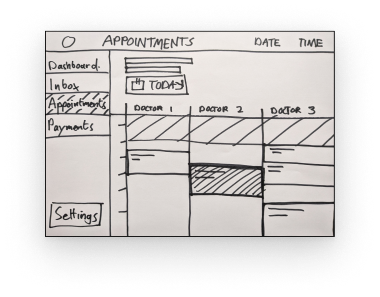 APPOINTMENTS DATE TIME
Dashboard.
Inbox
Appointments
Payments
Settings
TODAY
DOCTOR 1 DOCTOR 2 DOCTOR 3